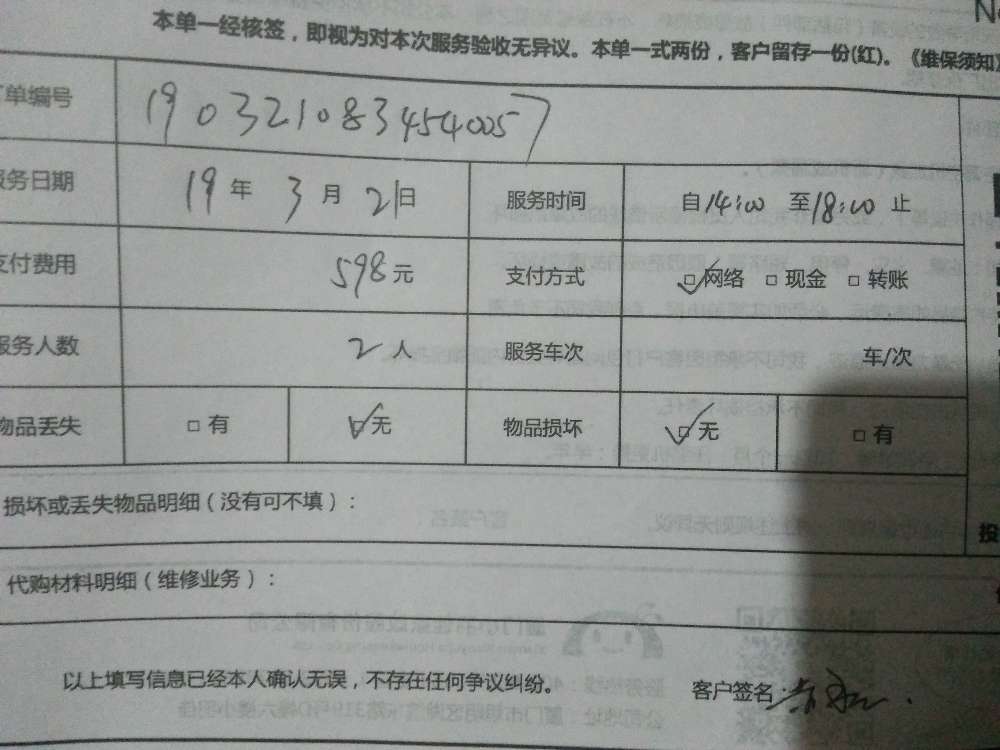 本单一经核签，即视为对本次服务验收无异议。本单一式两份，客户留存一份(红)。《维保须知》
单编号 1903210834540057
服务日期 19年 3月 21日 服务时间 自14:00 至18:00 止
支付费用 598元 支付方式 网络 现金 转账
服务人数 2人 服务车次 车/次
物品丢失 有 无 物品损坏 无 有
损坏或丢失物品明细（没有可不填）：
投
代购材料明细（维修业务）：
以上填写信息已经本人确认无误，不存在任何争议纠纷。 客户签名：